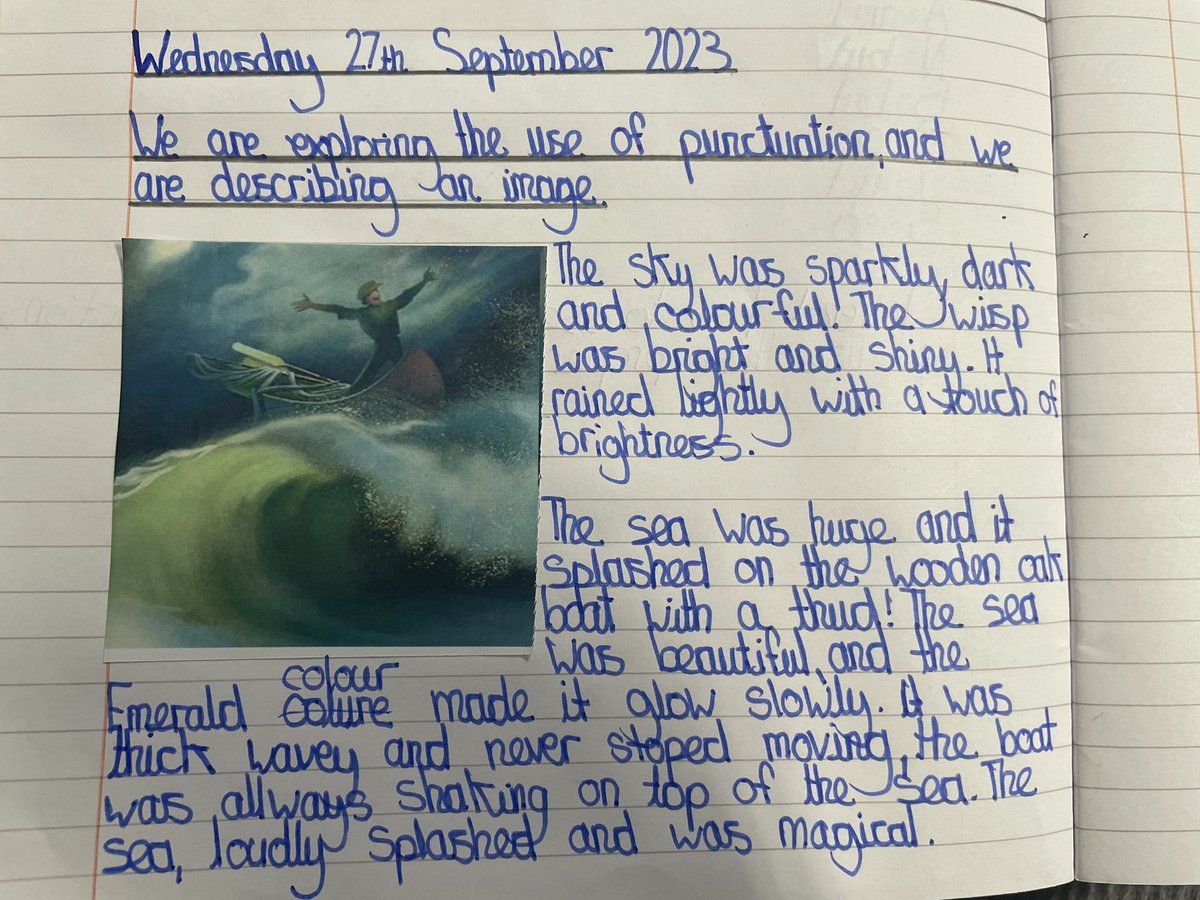 Wednesday 27th September 2023
We are exploring the use of punctuation, and we
are describing an image.
The sky was sparkly, dark
and , colourful. The wisp
was bright and shiny. It
rained lightly with a touch of
brightness.
The sea was huge and it
splashed on the wooden oak
boat with a thud! The sea
was beautiful, and the
colour
Emerald colure made it glow slowily. It was
thick wavey and never stoped moving, the boat
was allways shaking on top of the sea. The
sea, loudly splashed and was magical.